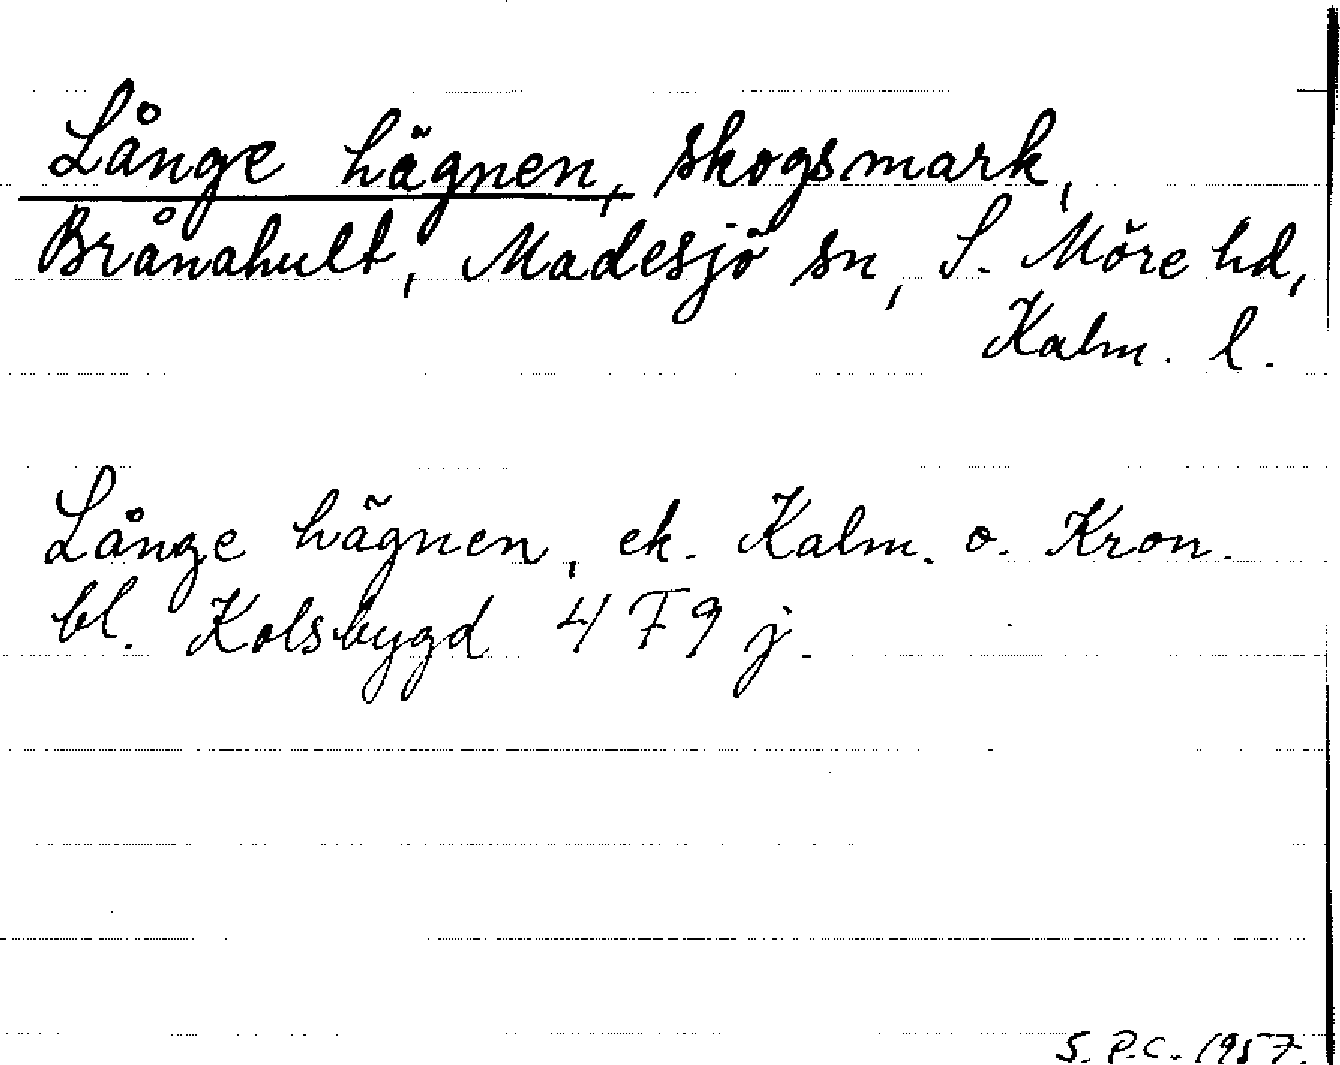 Långe hägnen, skogsmark,
Brånahult, Madesjö sn, S. Möre hd,
Kalm. l.
Långe hägnen, ek. Kalm. o. Kron.
bl. Kolsbygd 4 F 9 j.
S. P.C. 1957.